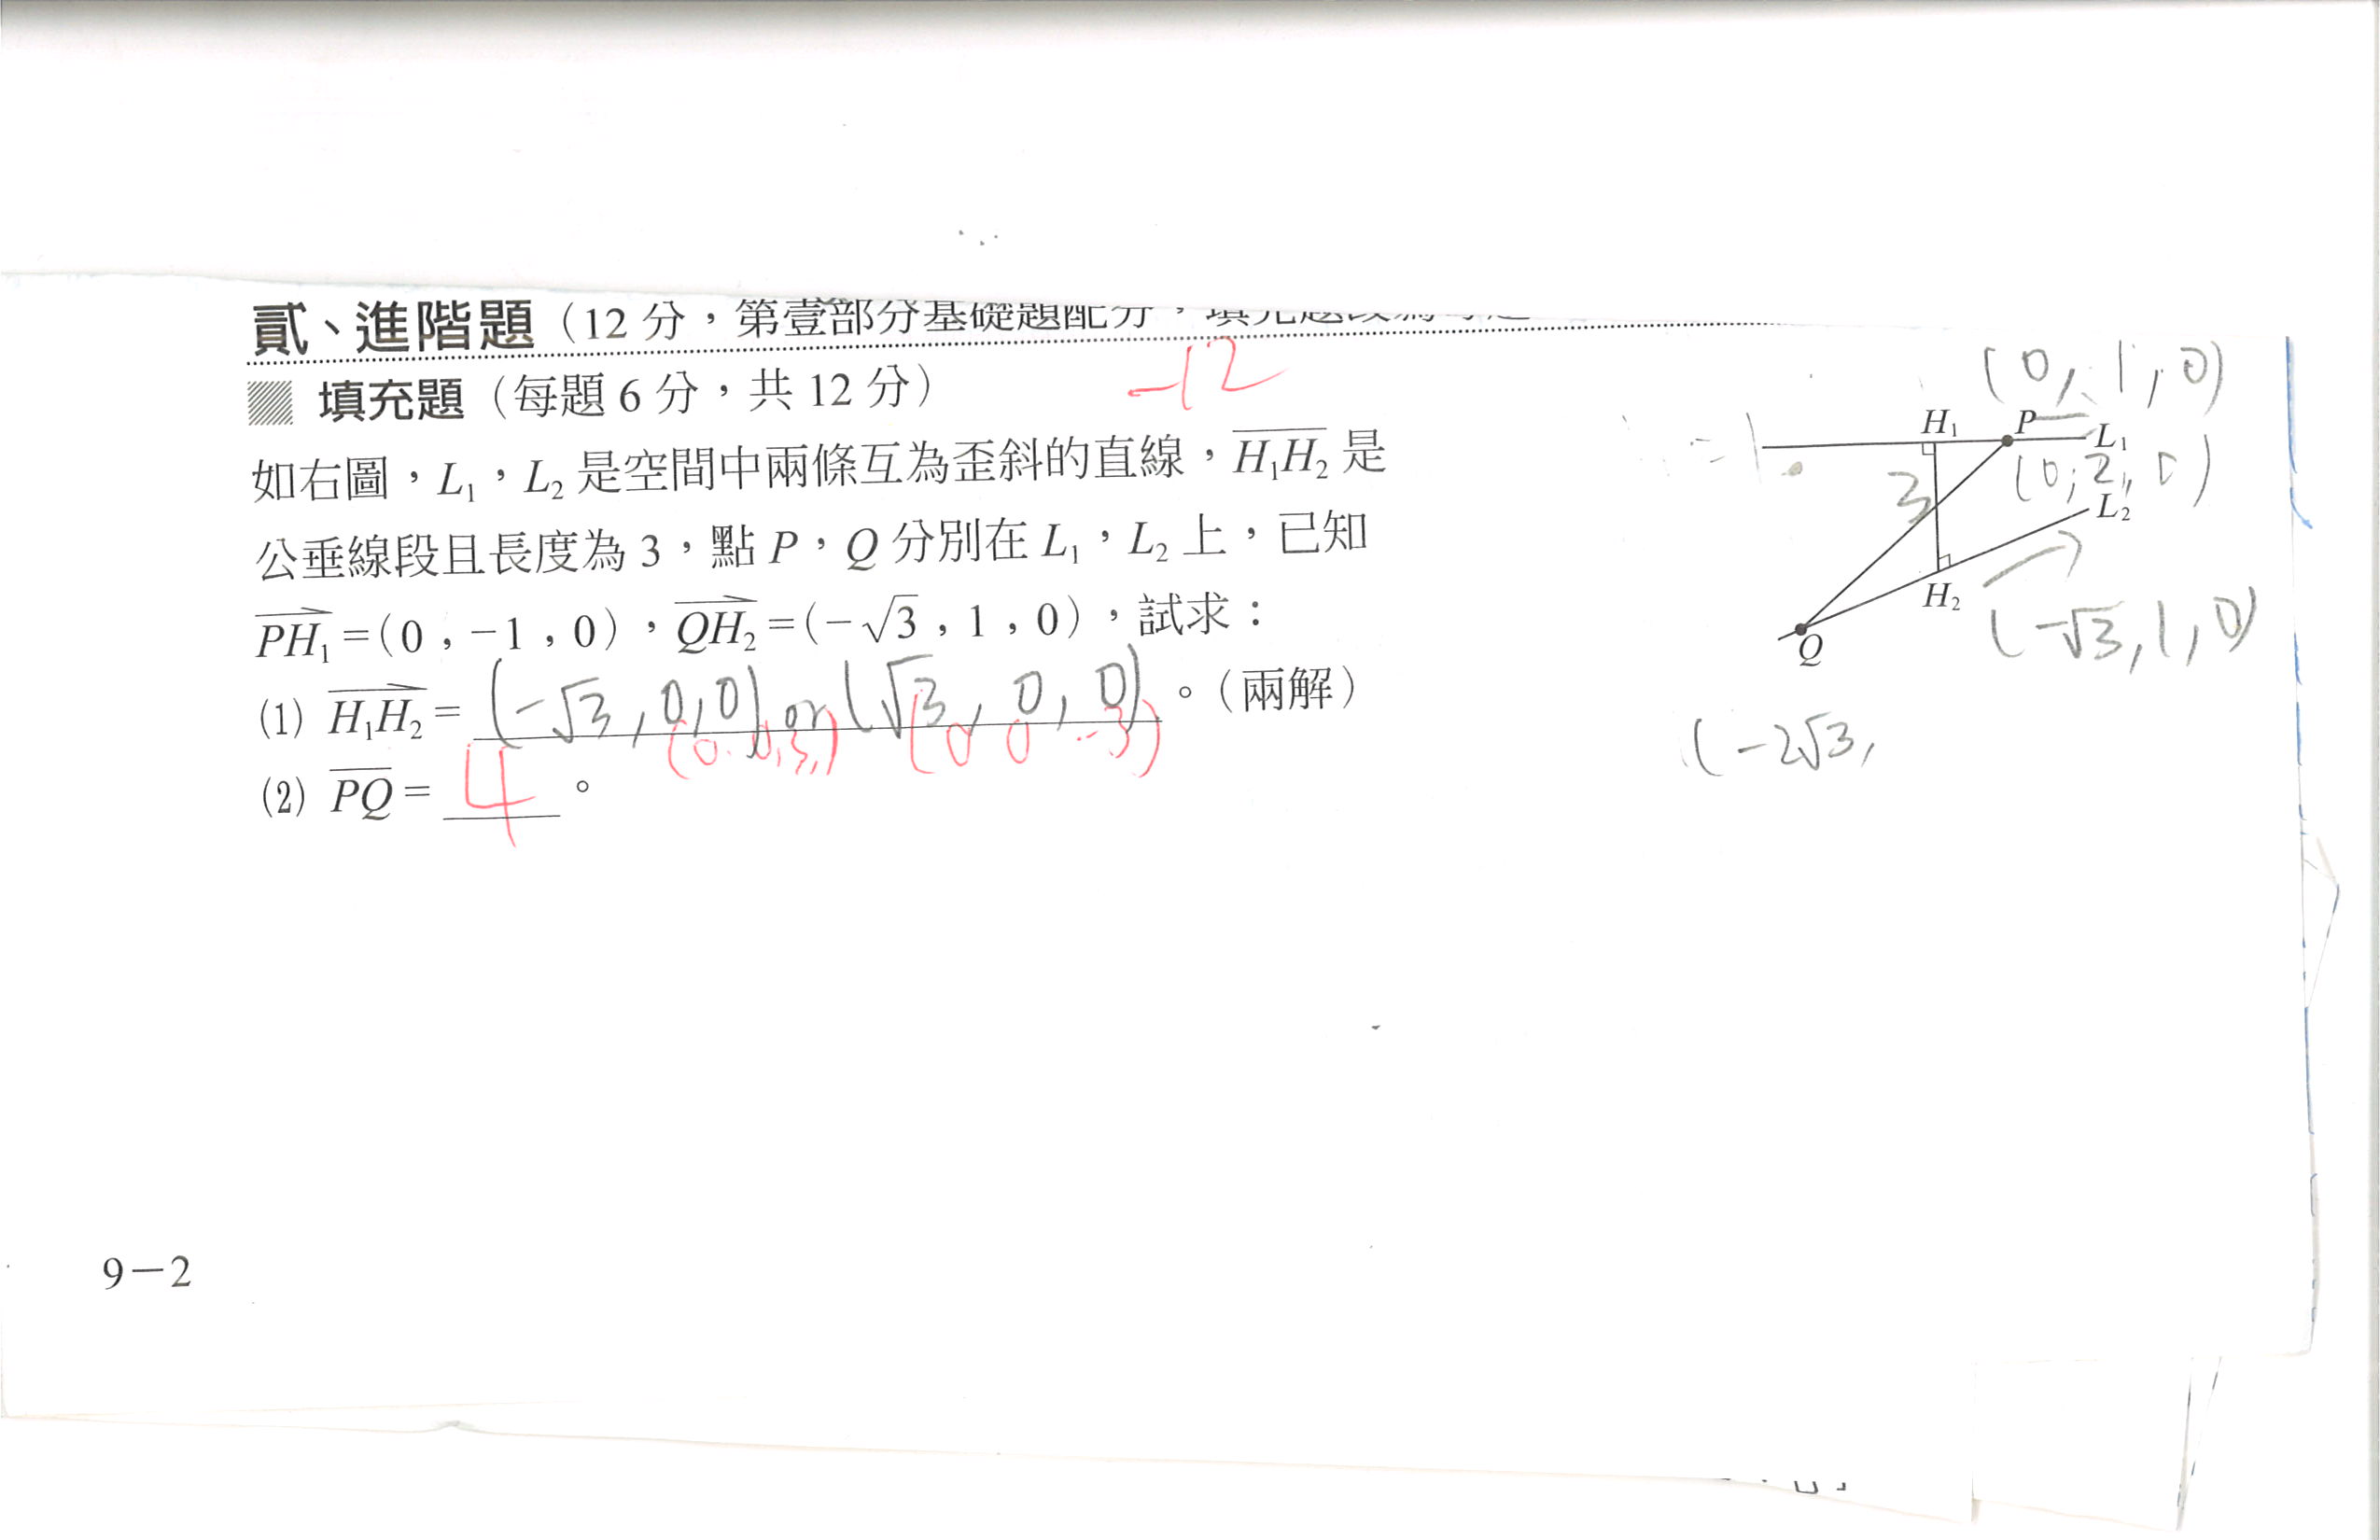 貳、進階題（12 分，第壹部分基礎題配分，填充題
-12
填充題（每題 6 分，共 12 分）
如右圖，L₁，L₂ 是空間中兩條互為歪斜的直線，H₁H₂ 是
公垂線段且長度為 3，點 P，Q 分別在 L₁，L₂ 上，已知
PH₁ =(0，-1，0)，QH₂ =(-√3，1，0)，試求：
(1) H₁H₂ = (-√3, 0, 0) or (√3, 0, 0)。（兩解）
(0, 0, 3) (0 0 -3)
(2) PQ = 4。
(0, 1, 0)
H₁ P L₁
3 (0, 2, 0)
L₂
H₂
Q
(-√3, 1, 0)
(-2√3,
9－2